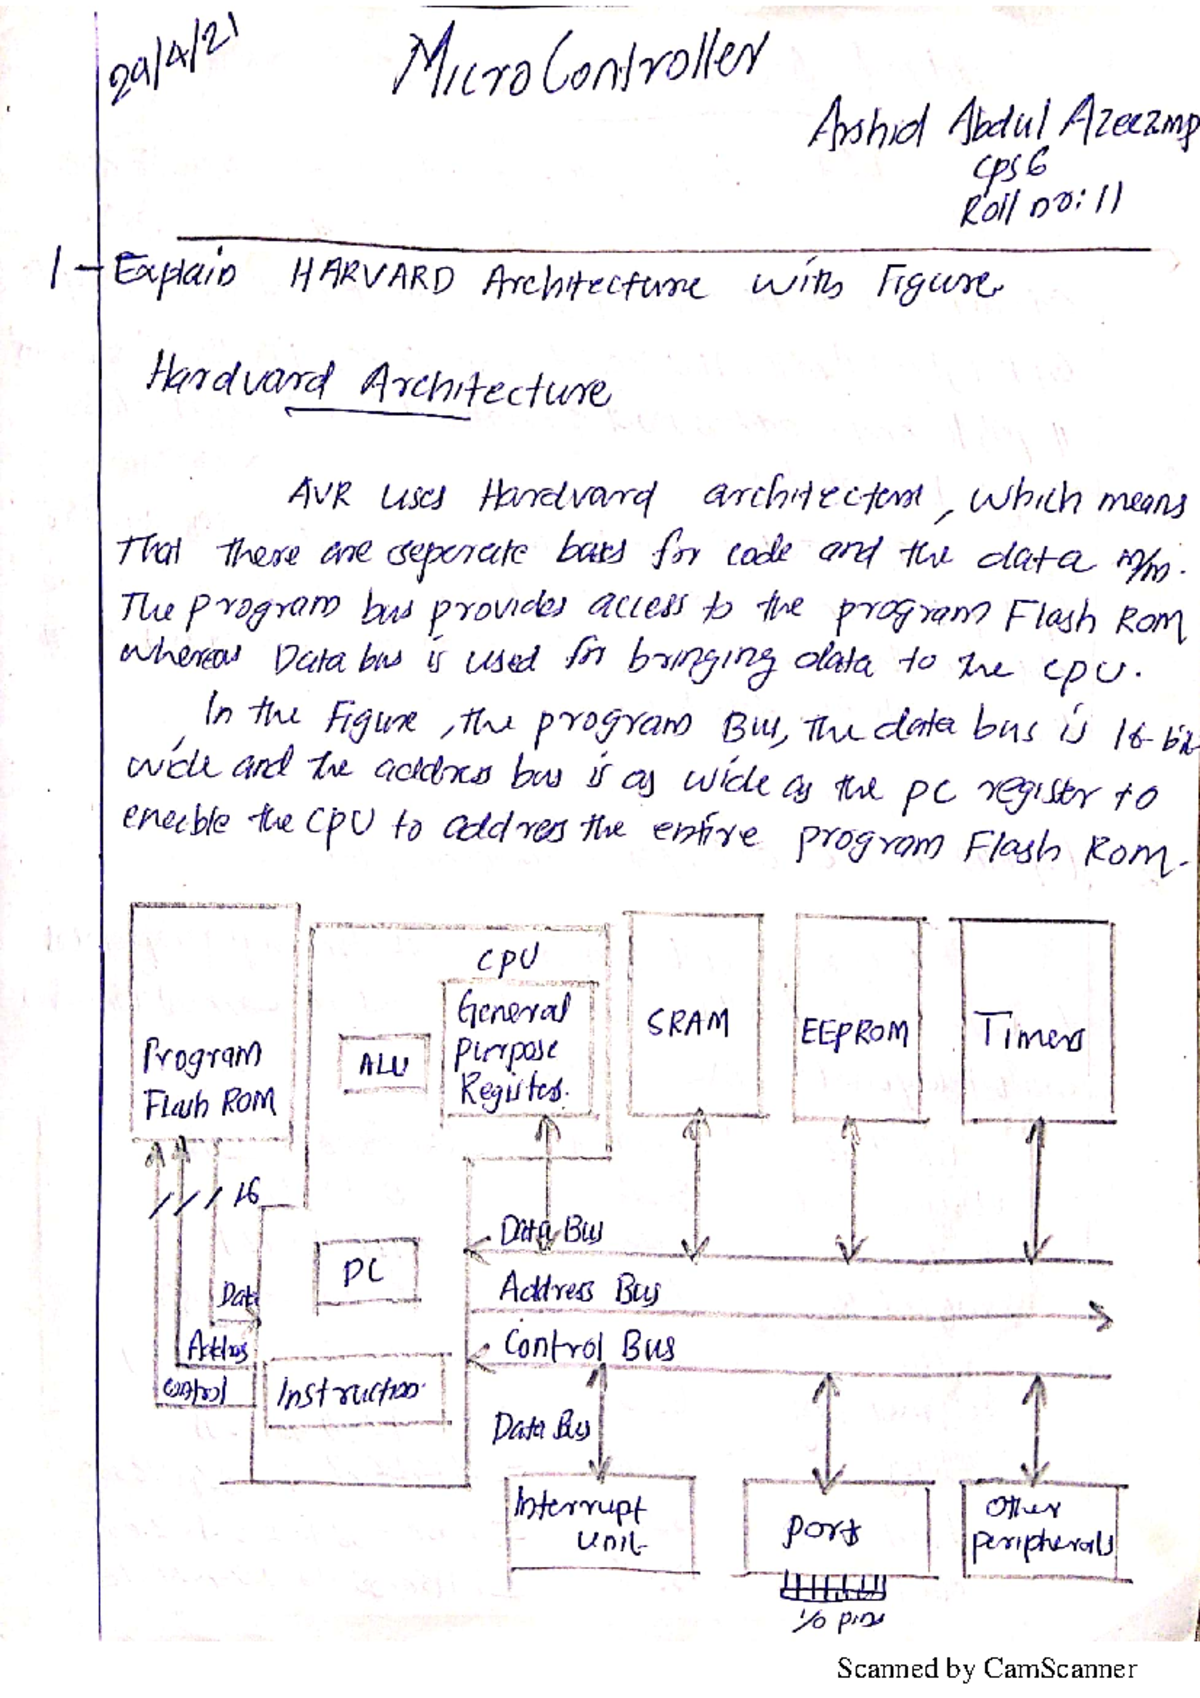 29/4/21
MicroController
Arshid Abdul Azeezmp
cps6
Roll no: 11
1 - Explain HARVARD Architecture with Figure.
Hardvard Architecture
AVR uses Hardvard architecture, which means
That there are seperate buses for code and the data m/m.
The program bus provides access to the program Flash ROM
whereas Data bus is used for bringing data to the cpu.
In the Figure, the program Bus, the data bus is 16-bit
wide and the address bus is as wide as the PC register to
eneble the CPU to address the entire program Flash Rom.
CPU
General
Purpose
Registes.
ALU
Program
Flash ROM
SRAM
EEPROM
Timers
16
Data Bus
PC
Address Bus
Data
Control Bus
Address
Control
Instruction
Data Bus
Interrupt
Unit
ports
Other
peripherals
I/O pins
Scanned by CamScanner